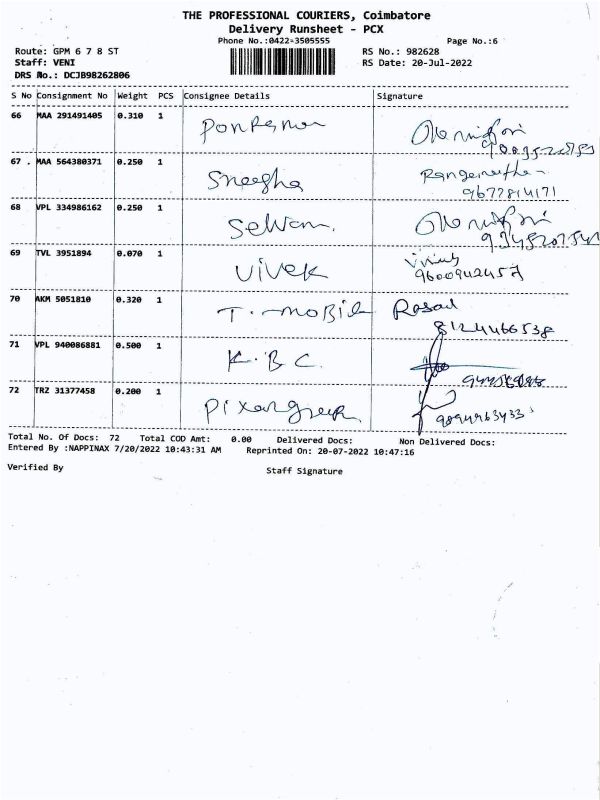 THE PROFESSIONAL COURIERS, Coimbatore
Delivery Runsheet - PCX
Phone No.:0422-3505555 Page No.:6
Route: GPM 6 7 8 ST RS No.: 982628
Staff: VENI RS Date: 20-Jul-2022
DRS No.: DCJB98262806
S No Consignment No Weight PCS Consignee Details Signature
66 MAA 291491405 0.310 1
67 . MAA 564380371 0.250 1 Sneegha
9677814171
68 VPL 334986162 0.250 1 Selvam.
69 TVL 3951894 0.070 1 Vivek
9600942457
70 AKM 5051810 0.320 1 T. mobile
8124466538
71 VPL 940086881 0.500 1 K.B.C.
72 TRZ 31377458 0.200 1
Total No. Of Docs: 72 Total COD Amt: 0.00 Delivered Docs: Non Delivered Docs:
Entered By :NAPPINAX 7/20/2022 10:43:31 AM Reprinted On: 20-07-2022 10:47:16
Verified By Staff Signature